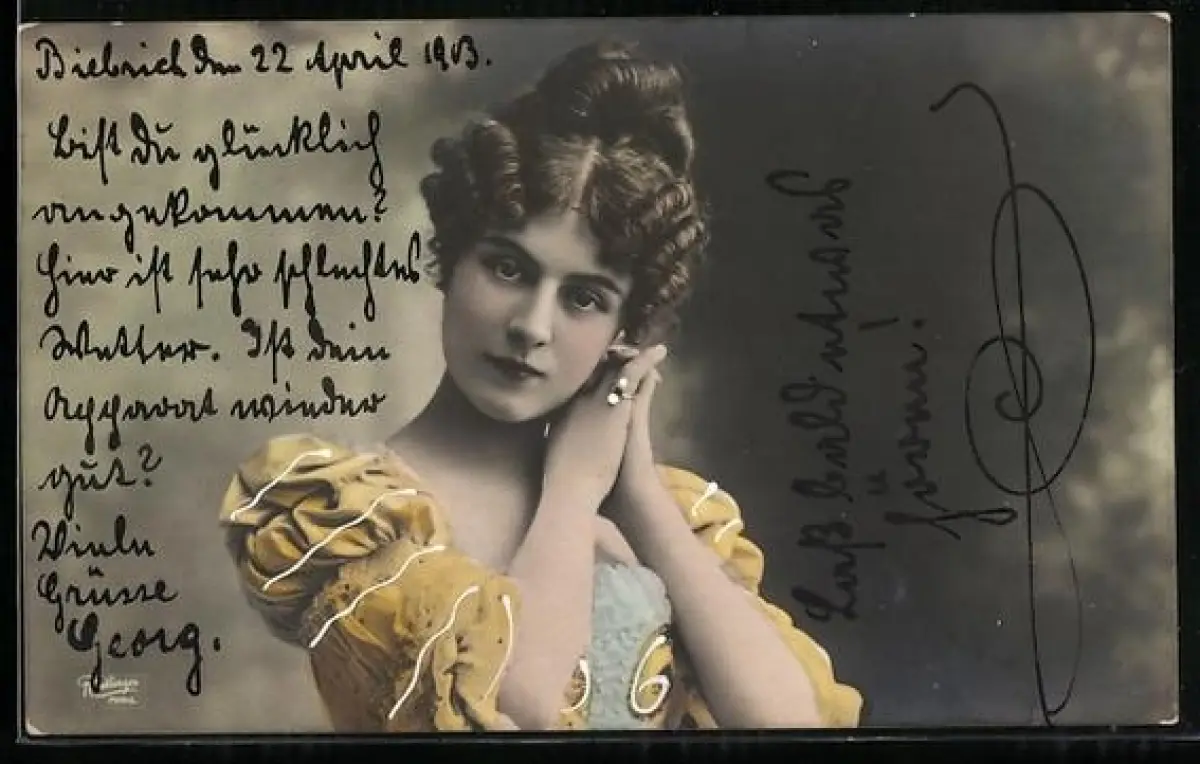 Biebrich den 22 April 1903.
Bist Du glücklich
angekommen?
Hier ist sehr schlechtes
Wetter. Ist dein
Apparat wieder
gut?
Viele
Grüsse
Georg.
Laß bald etwas
hören!
Reutlinger
PARIS